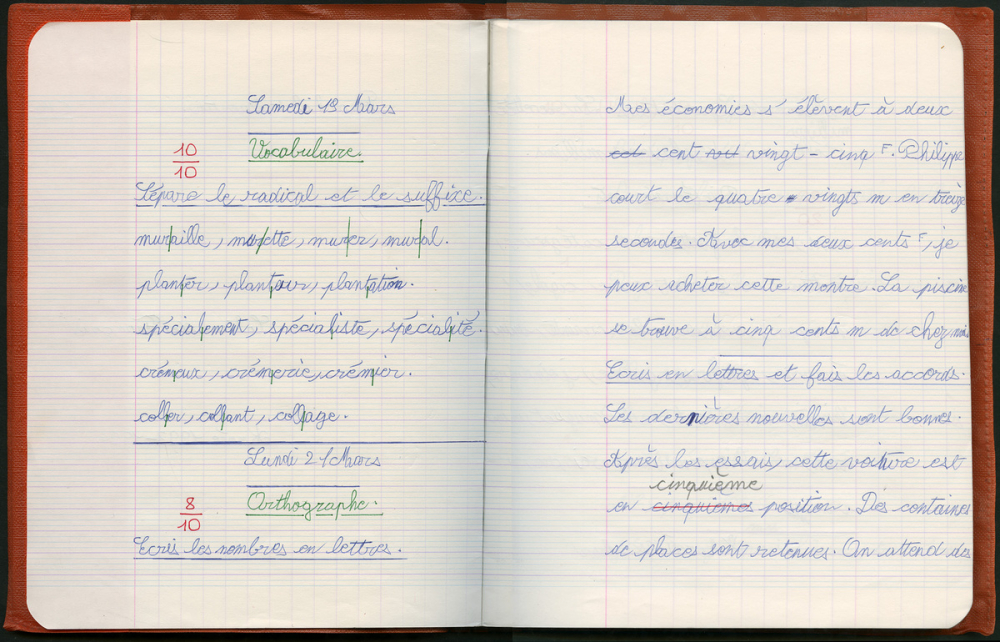 Samedi 19 Mars
10
10
Vocabulaire.
Sépare le radical et le suffixe.
mur/aille, mur/ette, mur/er, mur/al.
plant/er, plant/eur, plant/ation.
spécial/ement, spécial/iste, spécial/ité.
crém/eux, crém/erie, crém/ier.
coll/er, coll/ant, coll/age.
Lundi 21 Mars
8
10
Orthographe.
Ecris les nombres en lettres.
Mes économies s'élèvent à deux
cent vingt-cinq F. Philippe
court le quatre-vingts m en treize
secondes. Avec mes deux cents F, je
peux acheter cette montre. La piscine
se trouve à cinq cents m de chez moi
Ecris en lettres et fais les accords.
Les dernières nouvelles sont bonnes.
Après les essais, cette voiture est
cinquième
en cinquièmes position. Des centaines
de places sont retenues. On attend des